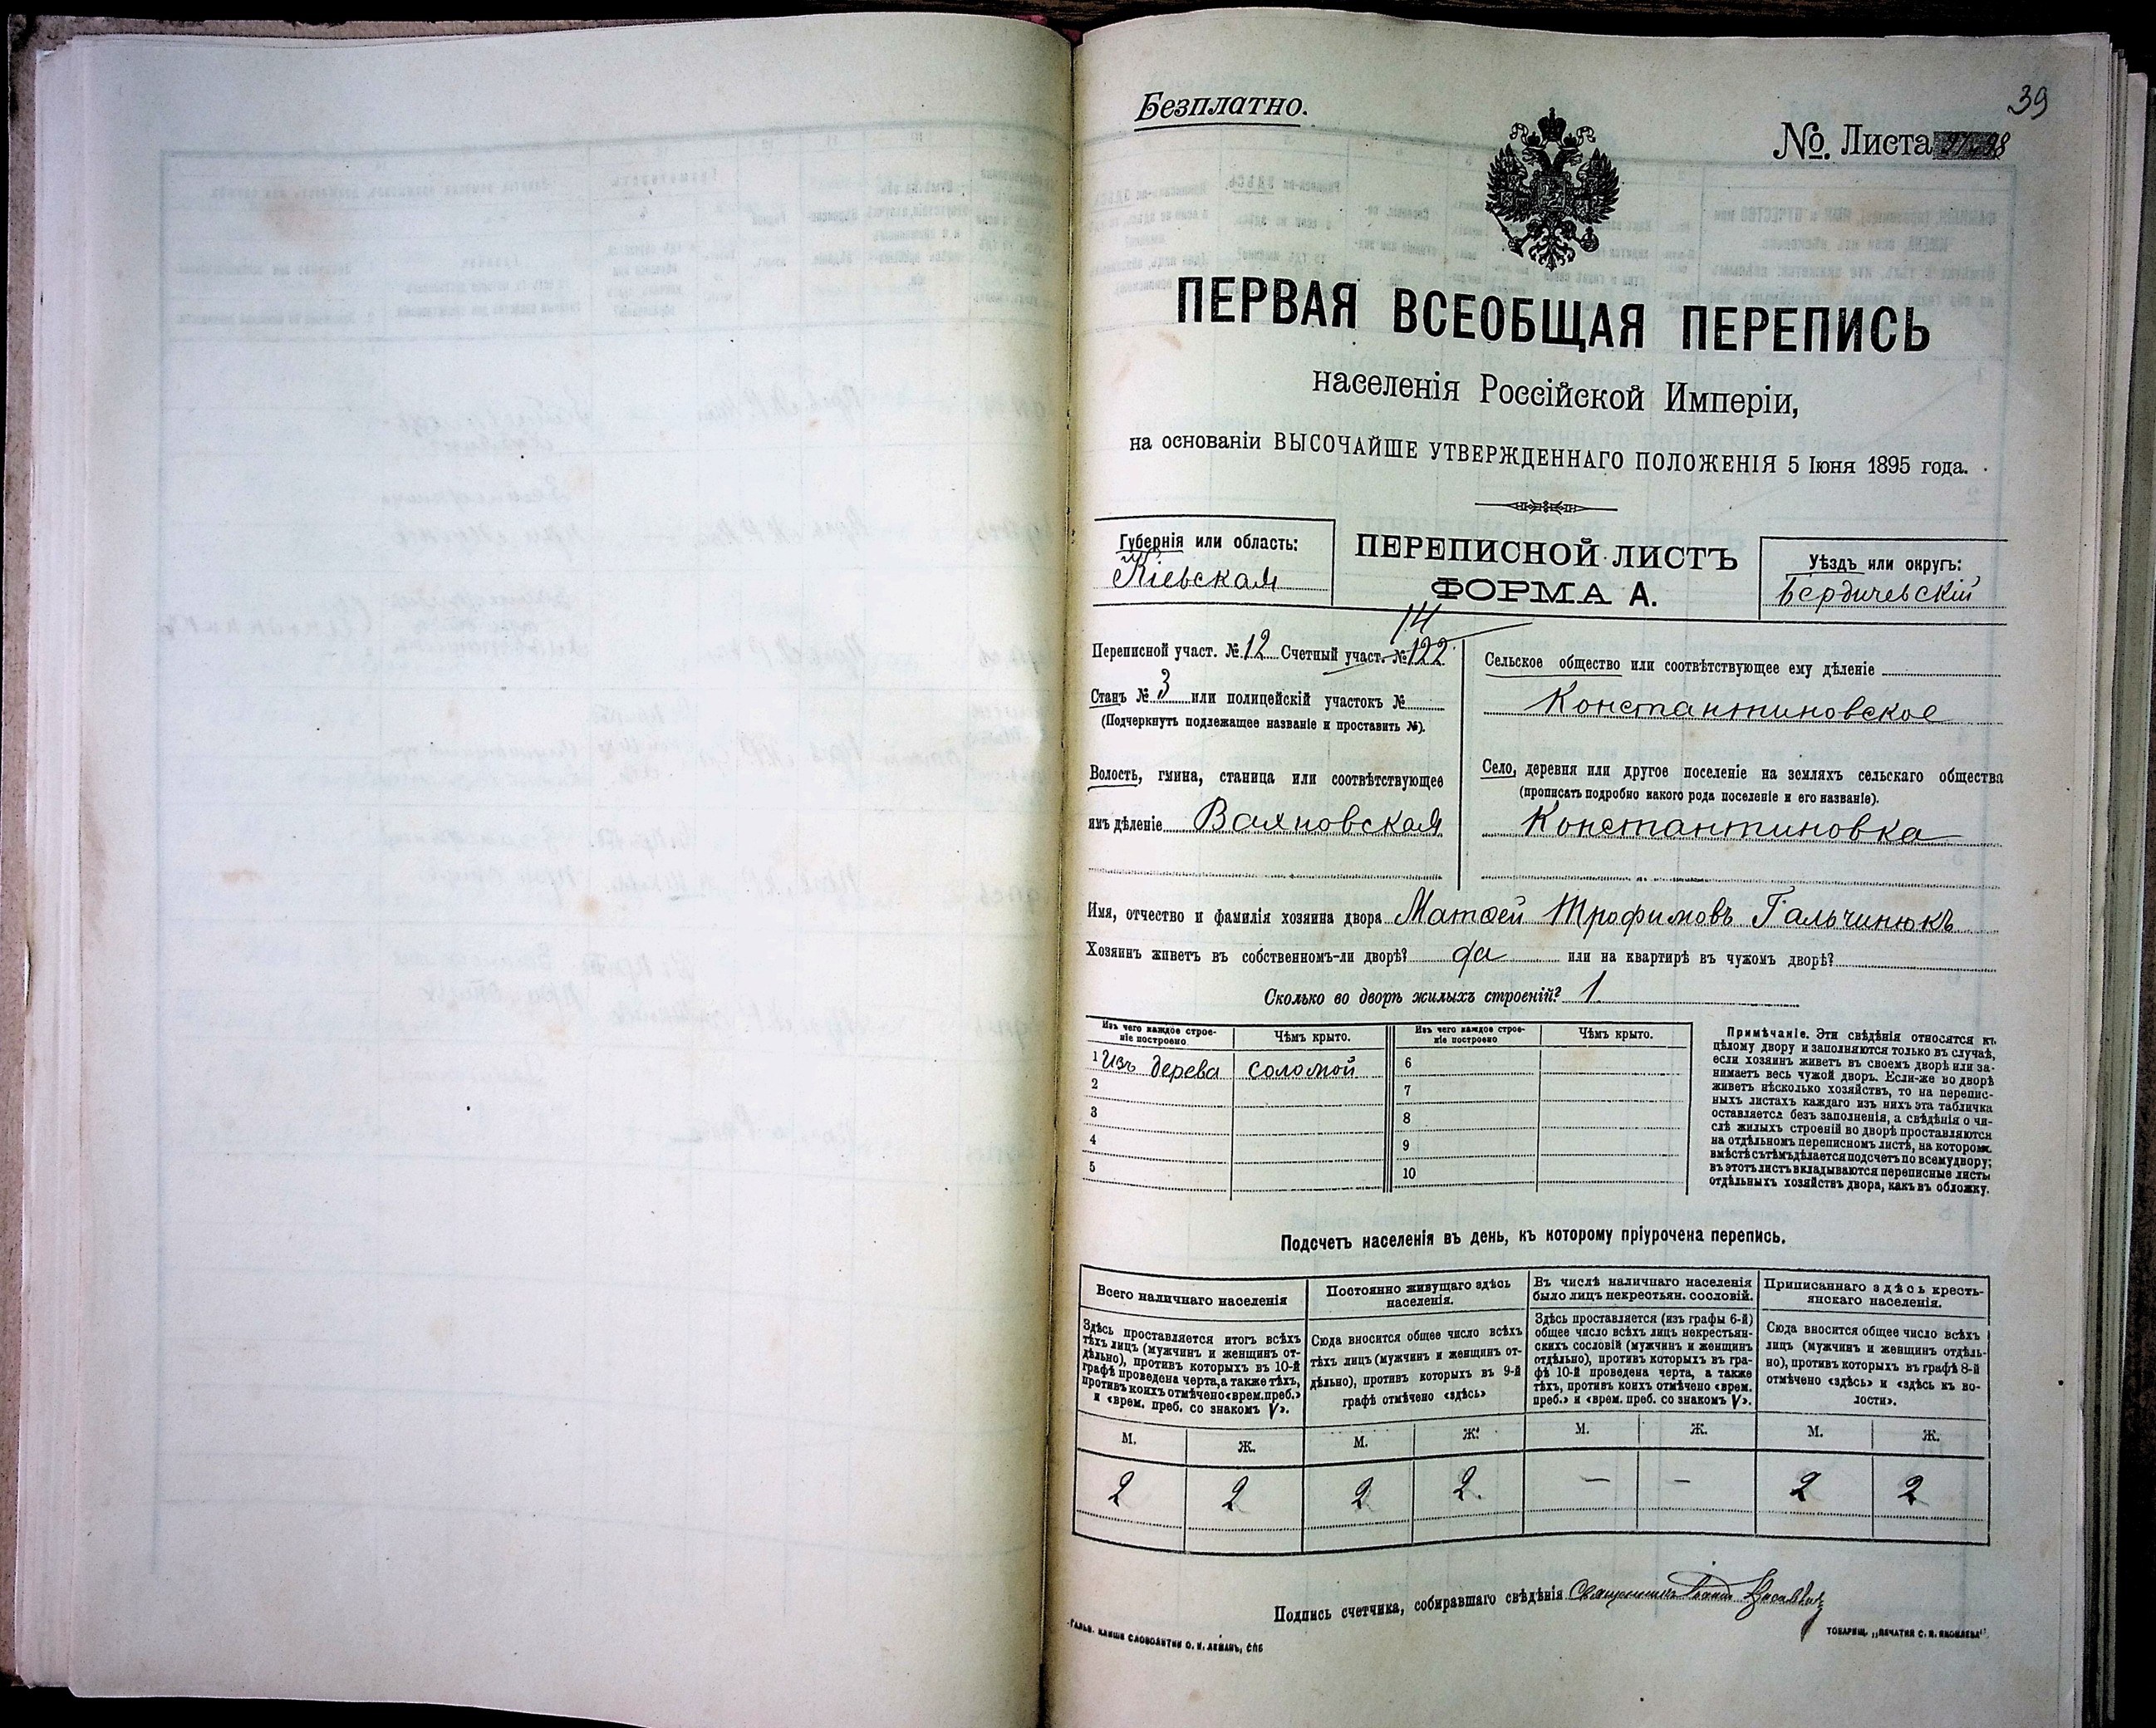 39
Безплатно.
№. Листа
ПЕРВАЯ ВСЕОБЩАЯ ПЕРЕПИСЬ
населенія Россійской Имперіи,
на основаніи ВЫСОЧАЙШЕ УТВЕРЖДЕННАГО ПОЛОЖЕНІЯ 5 Іюня 1895 года.
Губернія или область:
Кіевская
ПЕРЕПИСНОЙ ЛИСТЪ
ФОРМА А.
Уѣздъ или округъ:
Бердичевскій
14
Переписной участ. № 12 Счетный участ. № 122
Станъ № 3 или полицейскій участокъ №
(Подчеркнуть подлежащее названіе и проставить №).
Волость, гмина, станица или соотвѣтствующее
имъ дѣленіе Вахновская
Сельское общество или соотвѣтствующее ему дѣленіе
Константиновское
Село, деревня или другое поселеніе на земляхъ сельскаго общества
(прописать подробно какого рода поселеніе и его названіе).
Константиновка
Имя, отчество и фамилія хозяина двора Матѳей Трофимовъ Гальчинюкъ
Хозяинъ живетъ въ собственномъ-ли дворѣ? да или на квартирѣ въ чужомъ дворѣ?
Сколько во дворѣ жилыхъ строеній? 1
Изъ чего каждое строе-
ніе построено
Чѣмъ крыто.
1 Изъ дерева соломой
2
3
4
5
Изъ чего каждое строе-
ніе построено
Чѣмъ крыто.
6
7
8
9
10
Примѣчаніе. Эти свѣдѣнія относятся къ
цѣлому двору и заполняются только въ случаѣ,
если хозяинъ живетъ въ своемъ дворѣ или за-
нимаетъ весь чужой дворъ. Если-же во дворѣ
живетъ нѣсколько хозяйствъ, то на перепис-
ныхъ листахъ каждаго изъ нихъ эта табличка
оставляется безъ заполненія, а свѣдѣнія о чи-
слѣ жилыхъ строеній во дворѣ проставляются
на отдѣльномъ переписномъ листѣ, на которомъ
вмѣстѣ съ тѣмъ дѣлается подсчетъ по всему двору;
въ этотъ листъ вкладываются переписные листы
отдѣльныхъ хозяйствъ двора, какъ въ обложку.
Подсчетъ населенія въ день, къ которому пріурочена перепись.
Всего наличнаго населенія
Здѣсь проставляется итогъ всѣхъ
тѣхъ лицъ (мужчинъ и женщинъ от-
дѣльно), противъ которыхъ въ 10-й
графѣ проведена черта, а также тѣхъ,
противъ коихъ отмѣчено «врем. преб.»
и «врем. преб. со знакомъ V».
Постоянно живущаго здѣсь
населенія.
Сюда вносится общее число всѣхъ
тѣхъ лицъ (мужчинъ и женщинъ от-
дѣльно), противъ которыхъ въ 9-й
графѣ отмѣчено «здѣсь»
Въ числѣ наличнаго населенія
было лицъ некрестьян. сословій.
Здѣсь проставляется (изъ графы 6-й)
общее число всѣхъ лицъ некрестьян-
скихъ сословій (мужчинъ и женщинъ
отдѣльно), противъ которыхъ въ гра-
фѣ 10-й проведена черта, а также
тѣхъ, противъ коихъ отмѣчено «врем.
преб.» и «врем. преб. со знакомъ V».
Приписаннаго здѣсь кресть-
янскаго населенія.
Сюда вносится общее число всѣхъ
лицъ (мужчинъ и женщинъ отдѣль-
но), противъ которыхъ въ графѣ 8-й
отмѣчено «здѣсь» и «здѣсь къ во-
лости».
М. Ж. М. Ж. М. Ж. М. Ж.
2 2 2 2 — — 2 2
Подпись счетчика, собиравшаго свѣдѣнія Священникъ
ГАЛЬВ. КЛИШЕ СЛОВОЛИТНИ О. И. ЛЕМАНЪ, СПБ
ТОВАРИЩ. „ПЕЧАТНЯ С. П. ЯКОВЛЕВА"